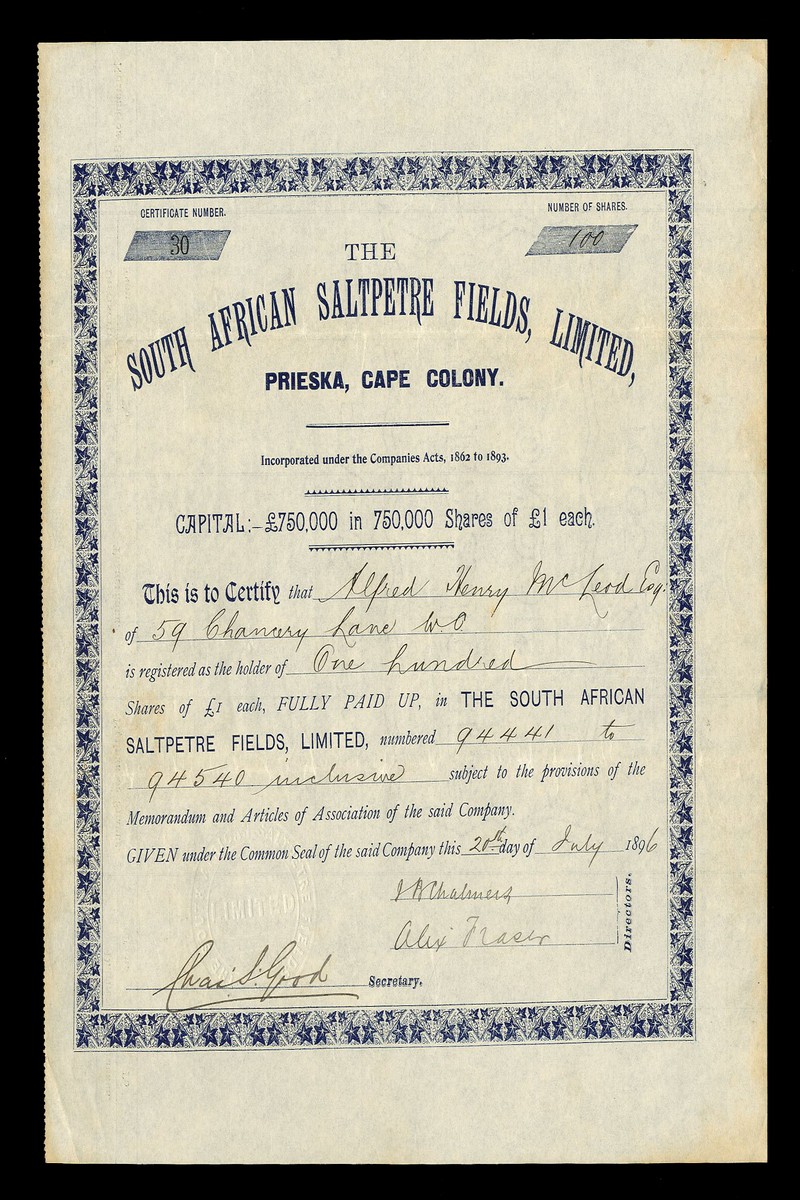 CERTIFICATE NUMBER.
30
NUMBER OF SHARES.
100
THE
SOUTH AFRICAN SALTPETRE FIELDS, LIMITED,
PRIESKA, CAPE COLONY.
Incorporated under the Companies Acts, 1862 to 1893.
CAPITAL:–£750,000 in 750,000 Shares of £1 each.
This is to Certify that Alfred Henry McLeod Esq.
of 59 Chancery Lane W.C
is registered as the holder of One hundred
Shares of £1 each, FULLY PAID UP, in THE SOUTH AFRICAN
SALTPETRE FIELDS, LIMITED, numbered 94441 to
94540 inclusive subject to the provisions of the
Memorandum and Articles of Association of the said Company.
GIVEN under the Common Seal of the said Company this 20th day of July 1896
Chalmers
Alex Fraser
Directors.
LIMITED
Chas. S. Good Secretary.